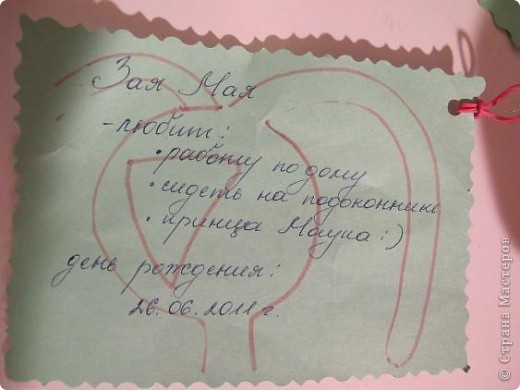 Зая Мая
- любит:
• работу по дому
• сидеть на подоконнике
• принца Маула :)
день рождения:
26.06.2011 г.
© Страна Мастеров